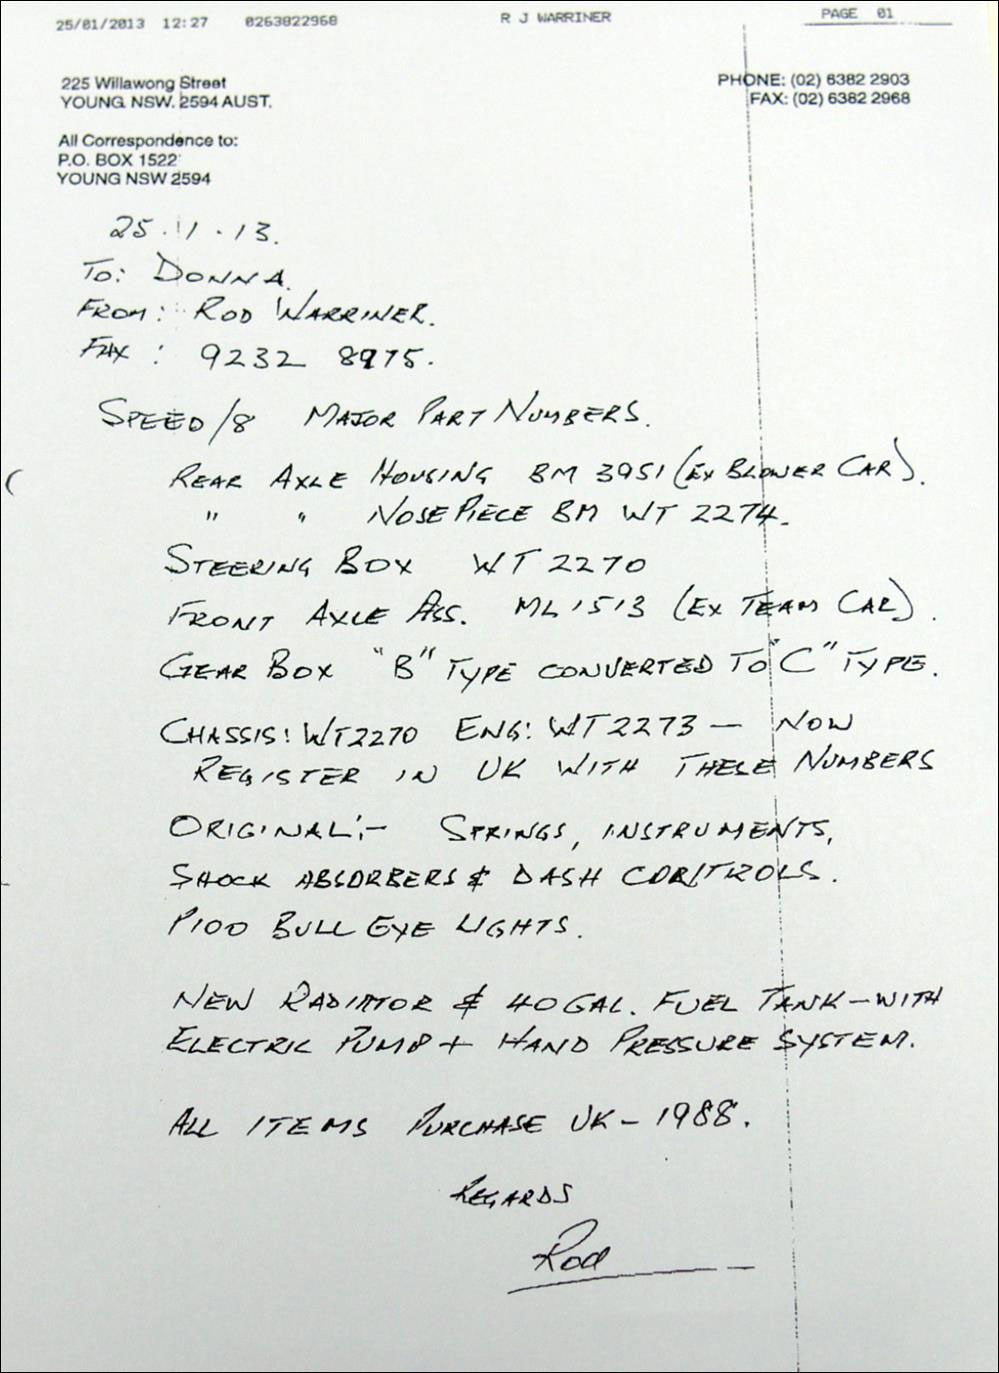 25/01/2013 12:27 0263822968 R J WARRINER PAGE 01
225 Willawong Street
YOUNG NSW. 2594 AUST.
PHONE: (02) 6382 2903
FAX: (02) 6382 2968
All Correspondence to:
P.O. BOX 1522
YOUNG NSW 2594
25.1.13.
TO: DONNA.
FROM: ROD WARRINER.
FAX: 9232 8975.
SPEED/8 MAJOR PART NUMBERS.
REAR AXLE HOUSING BM 3951 (EX BLOWER CAR).
" " NOSE PIECE BM WT 2274.
STEERING BOX WT 2270
FRONT AXLE ASS. ML 1513 (EX TEAM CAR).
GEAR BOX "B" TYPE CONVERTED TO "C" TYPE.
CHASSIS: WT2270 ENG: WT2273 — NOW
REGISTER IN UK WITH THESE NUMBERS
ORIGINAL:- SPRINGS, INSTRUMENTS,
SHOCK ABSORBERS & DASH CONTROLS.
P100 BULL EYE LIGHTS.
NEW RADIATOR & 40 GAL. FUEL TANK - WITH
ELECTRIC PUMP + HAND PRESSURE SYSTEM.
ALL ITEMS PURCHASE UK - 1988.
REGARDS
Rod